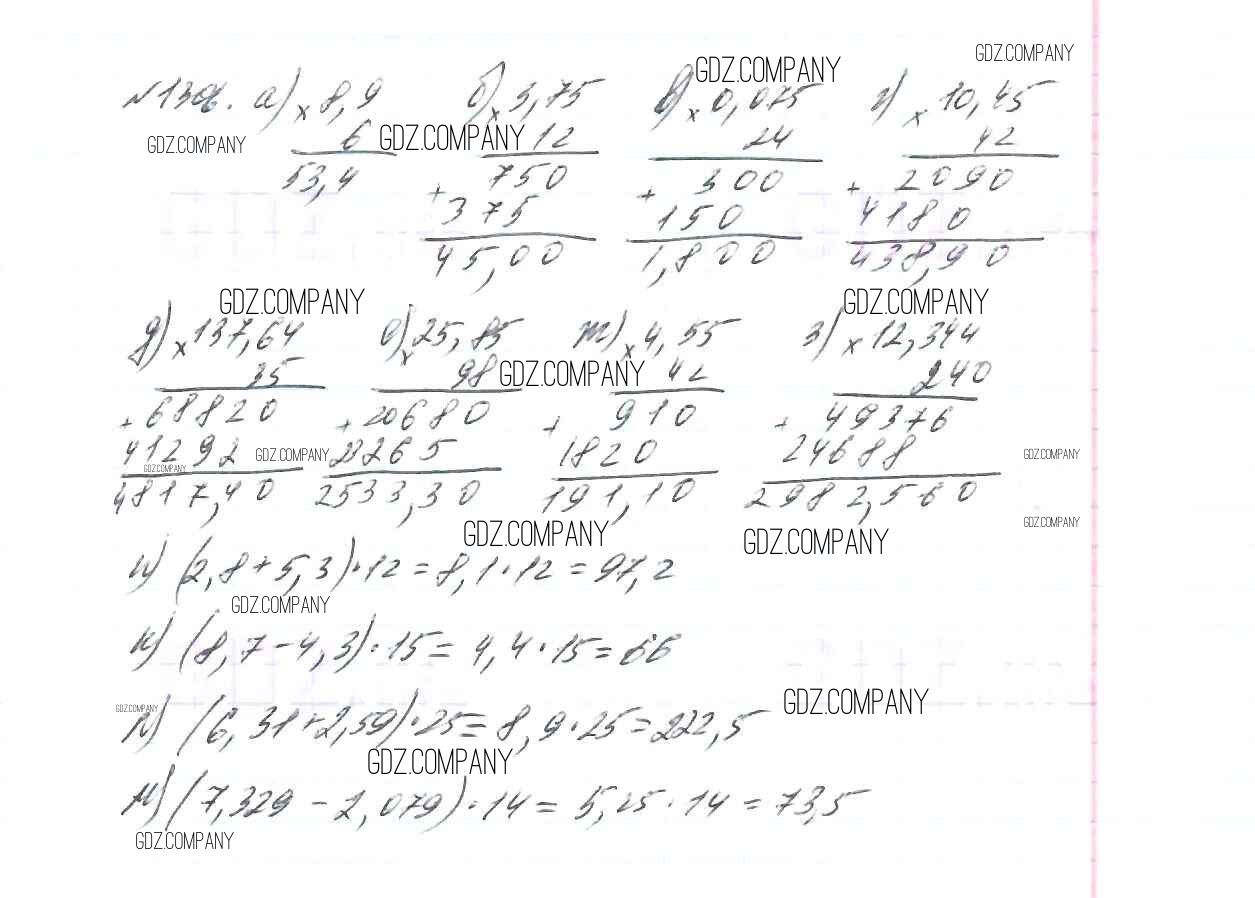 GDZ.COMPANY GDZ.COMPANY
а) × 8,9 б) × 3,75 в) × 0,075 г) × 10,45
GDZ.COMPANY 6 GDZ.COMPANY 12 24 42
53,4 + 750 + 300 + 2090
375 150 4180
45,00 1,800 438,90
GDZ.COMPANY GDZ.COMPANY
д) × 137,64 е) × 25,85 ж) × 4,55 з) × 12,344
35 98 GDZ.COMPANY 42 240
+ 68820 + 20680 + 910 + 49376
41292 GDZ.COMPANY 23265 1820 24688 GDZ.COMPANY
GDZ.COMPANY
4817,40 2533,30 191,10 2962,560
GDZ.COMPANY GDZ.COMPANY GDZ.COMPANY
и) (2,8+5,3)·12=8,1·12=97,2
GDZ.COMPANY
к) (8,7-4,3)·15=4,4·15=66
GDZ.COMPANY GDZ.COMPANY
л) (6,31+2,59)·25=8,9·25=222,5
GDZ.COMPANY
м) (7,329-2,079)·14=5,25·14=73,5
GDZ.COMPANY